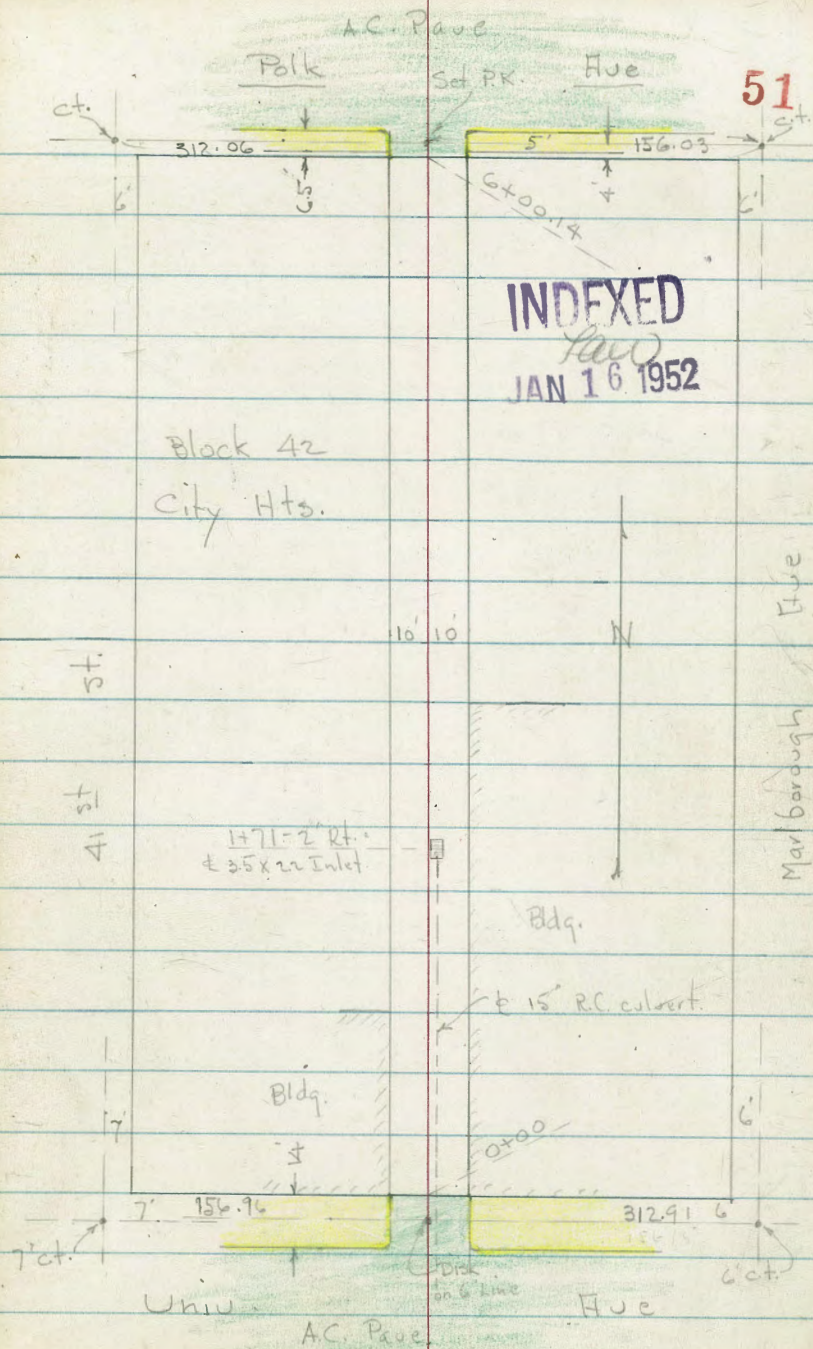 A.C. Pave
Polk Ave
Set P.K.
51
ct.
c.t.
312.06
5'
156.03
6'
6.5'
4'
6'
6+00.14
INDEXED
JAN 16 1952
Block 42
City Hts.
10' 10'
N
41 st St.
Marlborough Ave
1+71-2" Rt.
₵ 3.5 x 2.2 Inlet
Bldg.
₵ 15" R.C. culvert.
Bldg.
7'
4'
0+00
6'
7' 156.96
312.91 6
7' ct.
Disk
on 6' Line
6' c.t.
Univ. Ave
A.C. Pave.